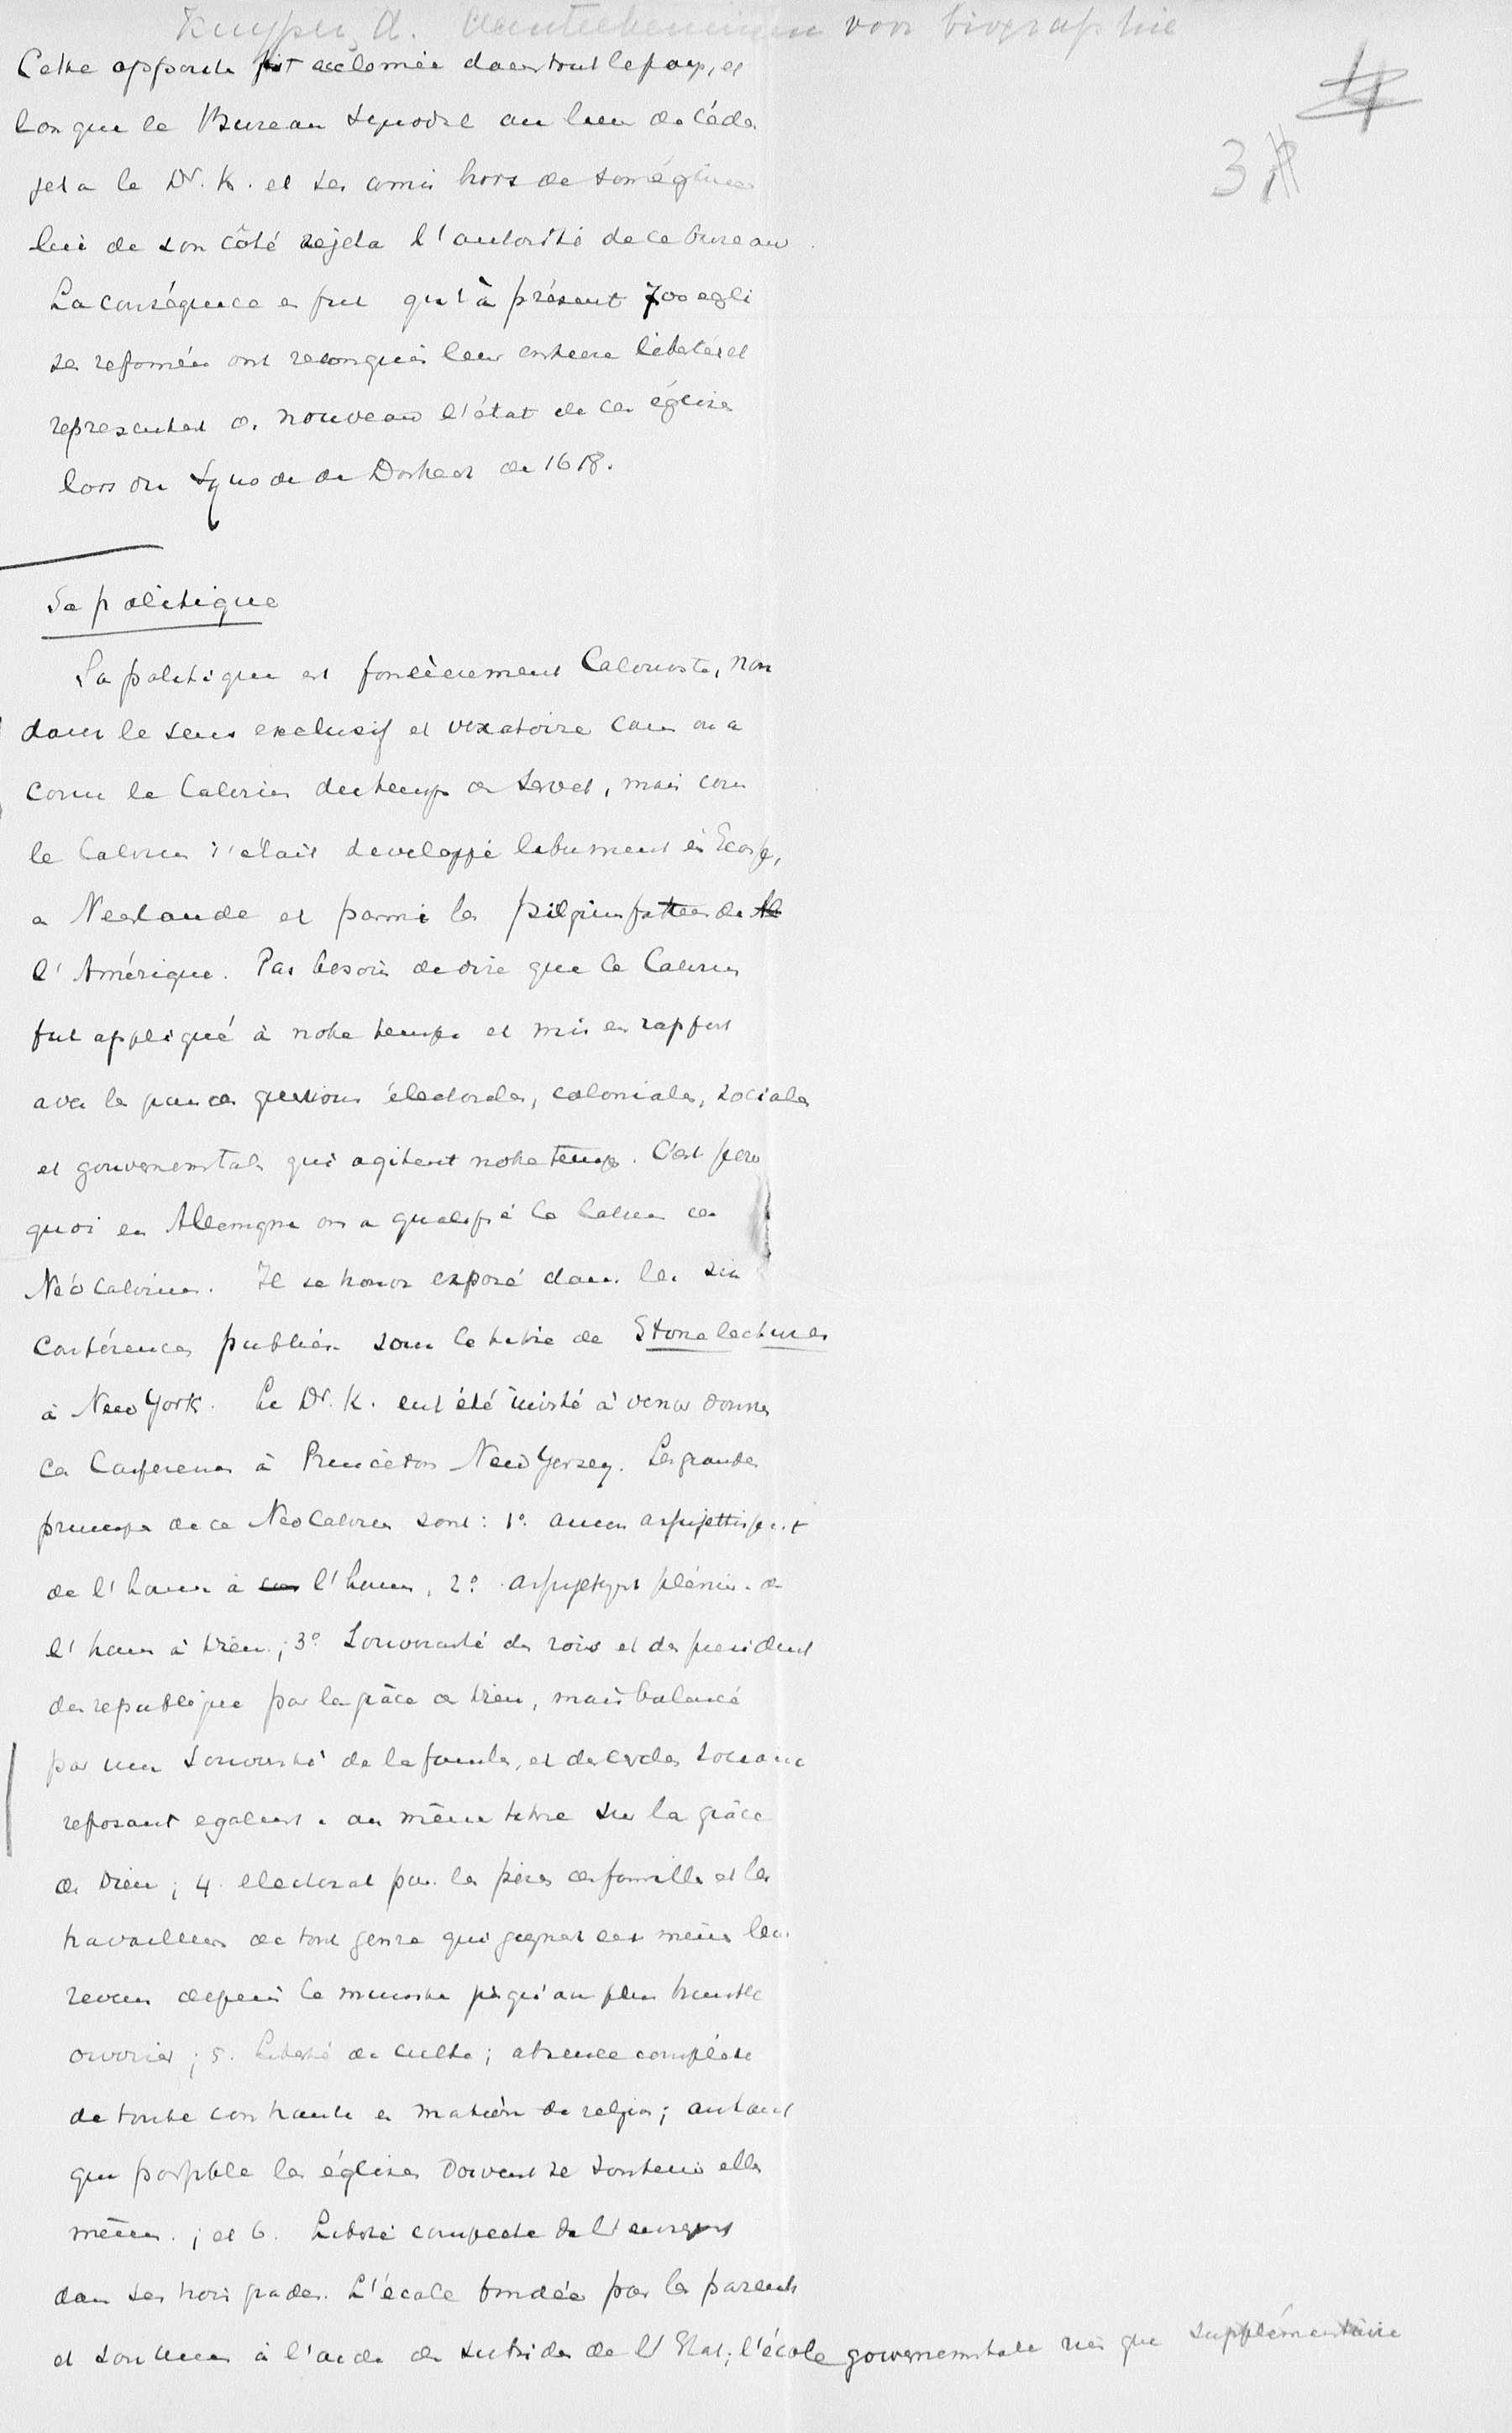 Kuyper, A. Aanteekeningen voor biographie
4
3
Cette opposite fut acclamée dans tout le pays, et
lorsque le Bureau Synodal au lieu de céder
jeta le Dr. K. et ses amis hors de son église
lui de son côté rejeta l'autorité de ce bureau.
La conséquence en fut qu'à présent 700 egli
ses reformées ont reconquis leur entiere liberté et
representent a nouveau l'état de ces églises
lors du Synode de Dortrecht de 1618.
Sa politique
Sa politique est foncièrement Calviniste, non
dans le sens exclusif et vexatoire comme on a
connu le Calvinisme du temps de Servet, mais comme
le Calvinisme s'était developpé librement en Ecosse,
a Neerlande et parmi les pilgrimfathers de
l'Amérique. Pas besoin de dire que le Calvinisme
fut appliqué à notre temps et mis en rapport
avec les grandes questions électorales, coloniales, sociales
et gouvernementales qui agitent notre temps. C'est pour
quoi en Allemagne on a qualifié le Calvinisme de
NéoCalvinisme. Il se trouve exposé dans les six
Conférences publiées sous le titre de Stone lectures
à New York. Le Dr. K. eut été invité à venir donner
ces Conferences à Princeton New Jersey. Les grandes
principes de ce NeoCalvinisme sont: 1o. aucun assujettissement
de l'homme à l'homme, 2o. assujettissement plénier de
l'homme à Dieu; 3o Souveraineté des rois et des presidents
des republique par la grâce de Dieu, mais balancé
par une souveraineté de la famille, et des cercles sociaux
reposant egalement au même titre sur la grâce
de Dieu; 4. electorat pour les pères de famille et les
travailleurs de tout genre qui gagnent eux mêmes leur
revenu depuis le ministre jusqu'au plus humble
ouvrier; 5. Liberté de culte; absence complète
de toute contrainte en matière de religion; autant
que possible les églises doivent se soutenir elles
mêmes; et 6. Liberté complete de l'enseignement
dans ses trois grades. L'école fondée par les parents
et soutenue à l'aide de subsides de l'Etat; l'école gouvernementale rien que supplémentaire